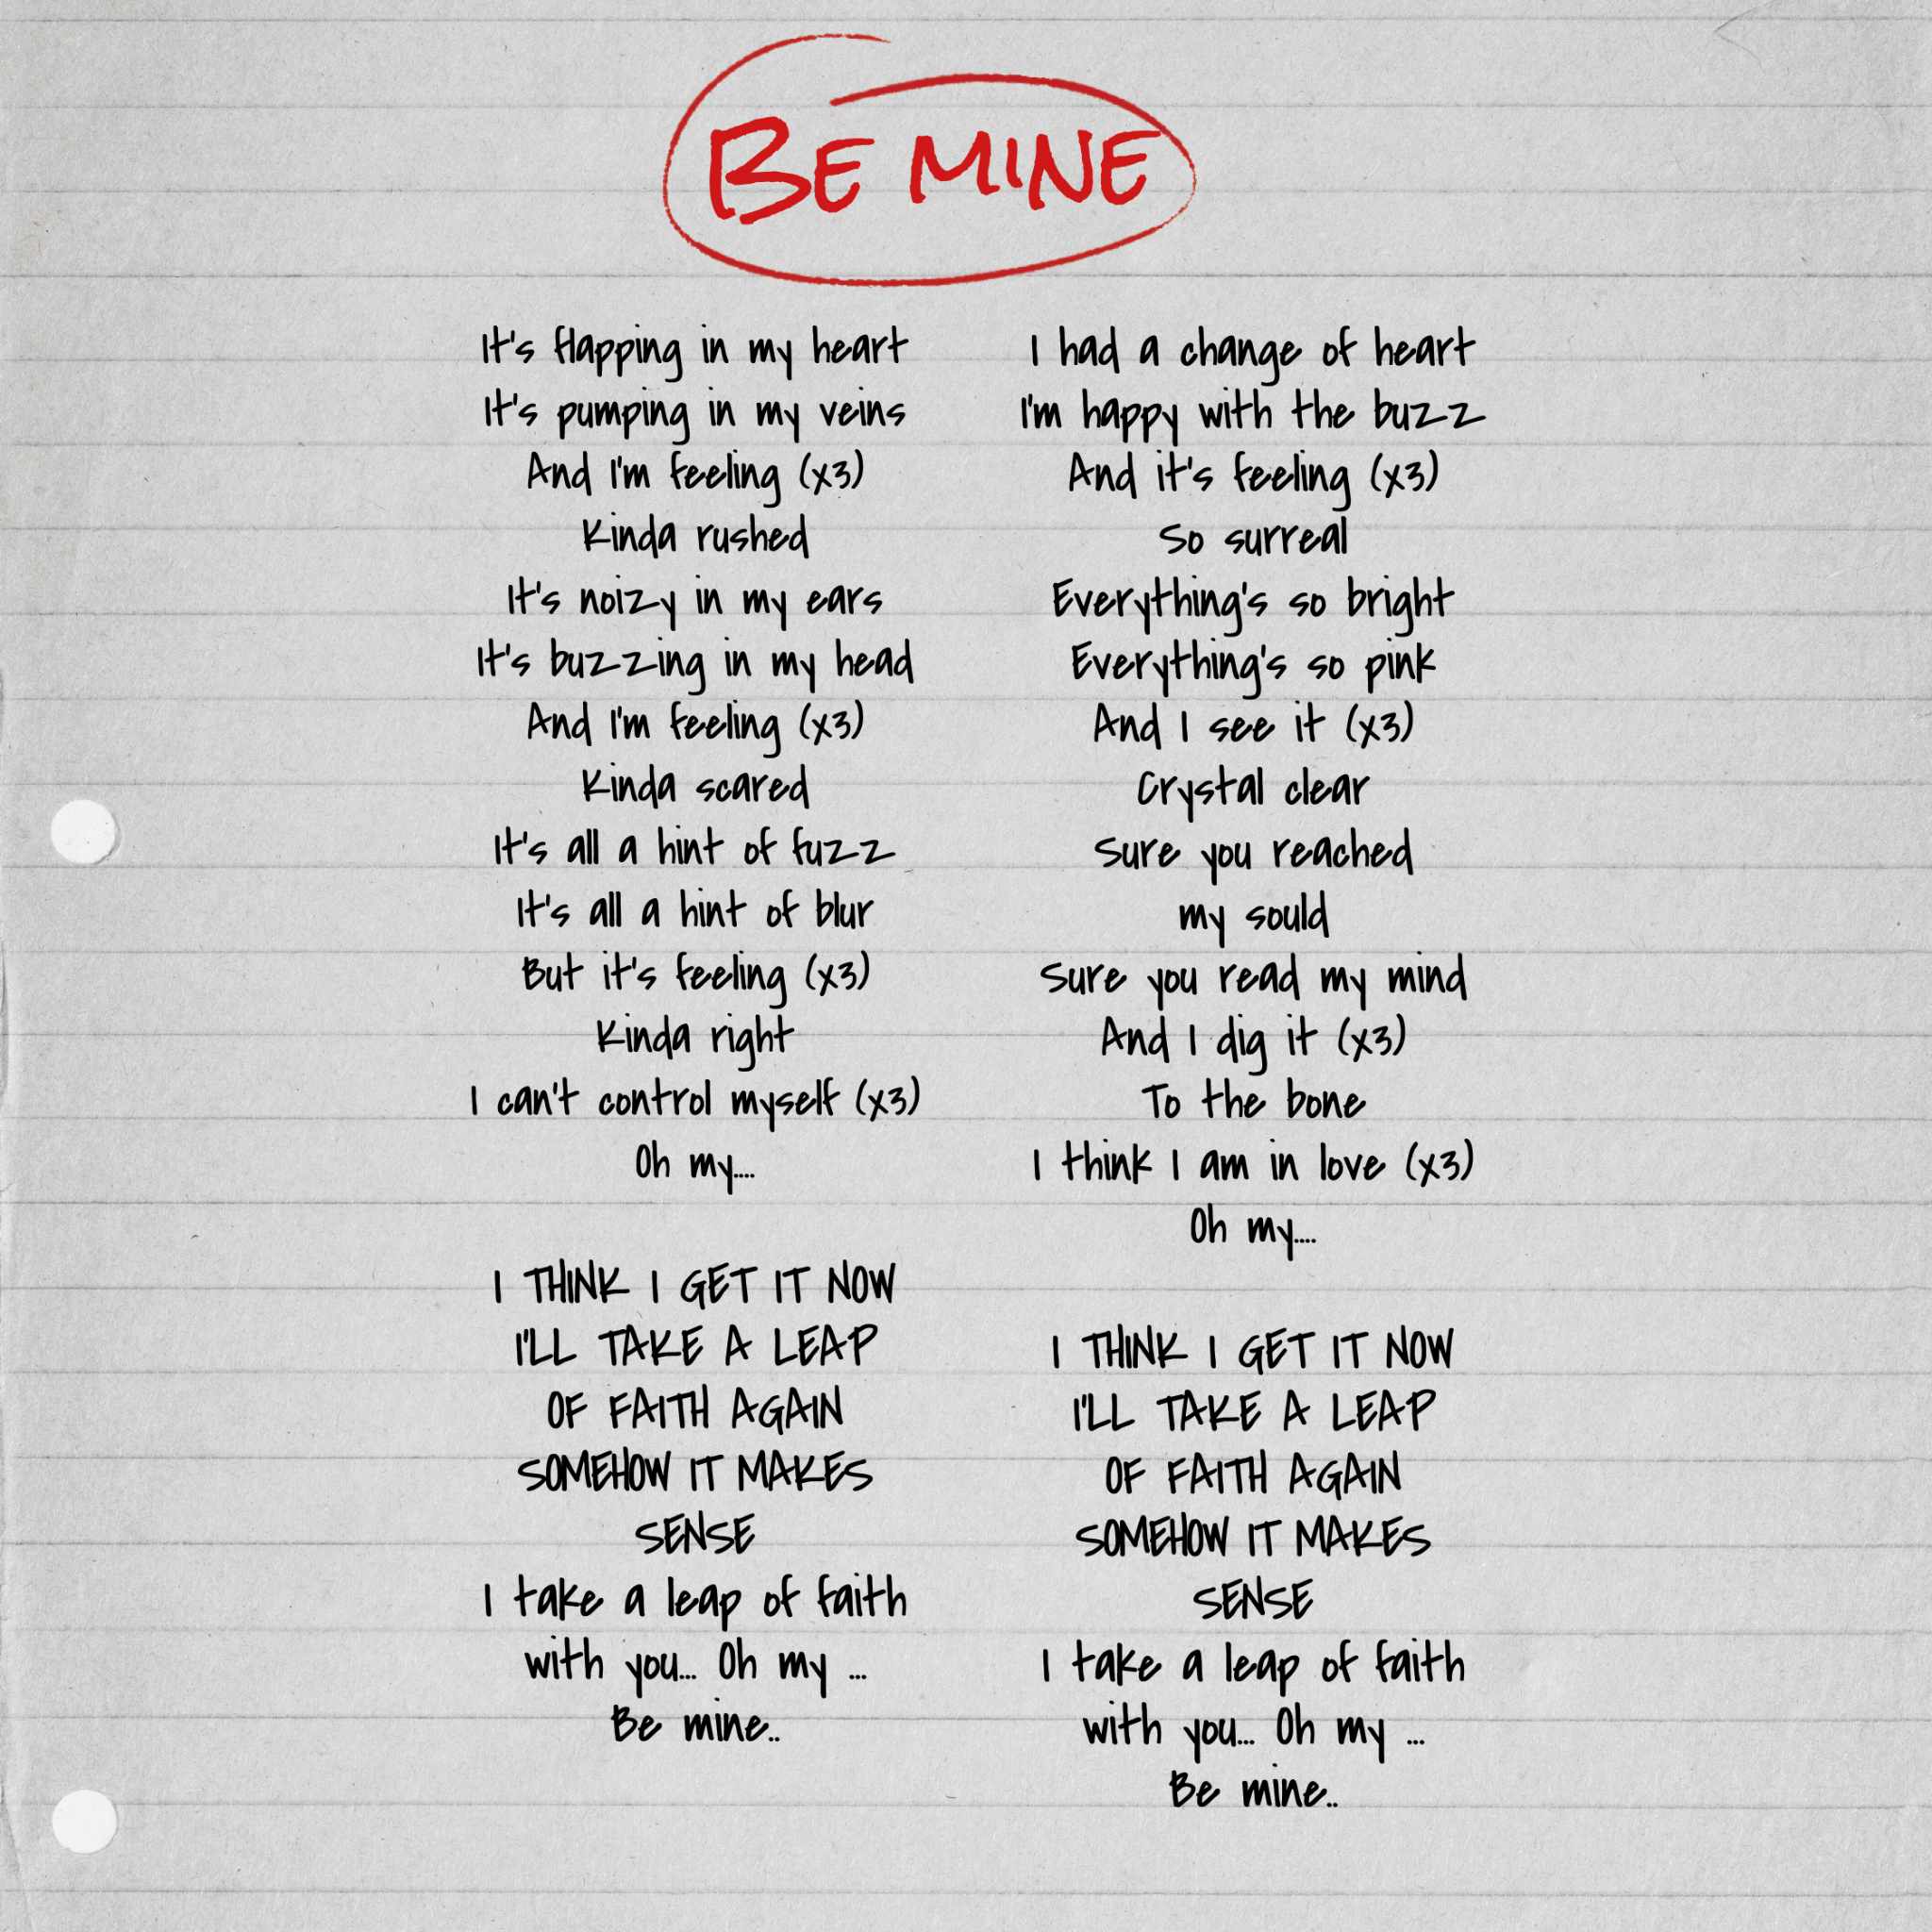 BE MINE
It's flapping in my heart
It's pumping in my veins
And I'm feeling (x3)
Kinda rushed
It's noizy in my ears
It's buzzing in my head
And I'm feeling (x3)
Kinda scared
It's all a hint of fuzz
It's all a hint of blur
But it's feeling (x3)
Kinda right
I can't control myself (x3)
Oh my....
I THINK I GET IT NOW
I'LL TAKE A LEAP
OF FAITH AGAIN
SOMEHOW IT MAKES
SENSE
I take a leap of faith
with you... Oh my ...
Be mine..
I had a change of heart
I'm happy with the buzz
And it's feeling (x3)
So surreal
Everything's so bright
Everything's so pink
And I see it (x3)
Crystal clear
Sure you reached
my sould
Sure you read my mind
And I dig it (x3)
To the bone
I think I am in love (x3)
Oh my....
I THINK I GET IT NOW
I'LL TAKE A LEAP
OF FAITH AGAIN
SOMEHOW IT MAKES
SENSE
I take a leap of faith
with you... Oh my ...
Be mine..